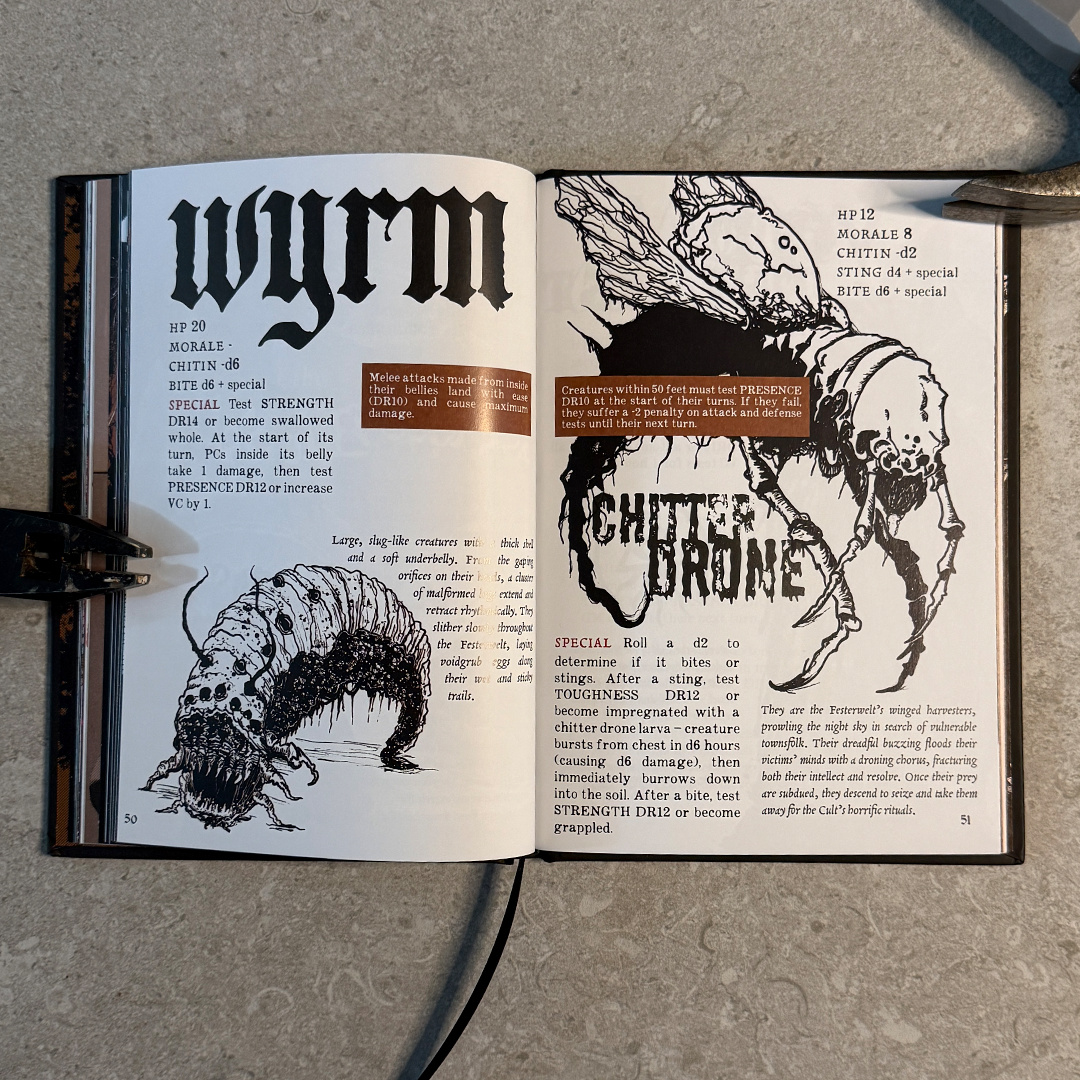 wyrm
HP 20
MORALE -
CHITIN -d6
BITE d6 + special
SPECIAL Test STRENGTH
DR14 or become swallowed
whole. At the start of its
turn, PCs inside its belly
take 1 damage, then test
PRESENCE DR12 or increase
VC by 1.
Melee attacks made from inside
their bellies land with ease
(DR10) and cause maximum
damage.
Large, slug-like creatures with thick shell
and a soft underbelly. From the gaping
orifices on their, a cluster
of malformed extend and
retract rhythmically. They
slither slow throughout
the Festerwelt, laying
voidgrub eggs along
their and sticky
trails.
50
HP 12
MORALE 8
CHITIN -d2
STING d4 + special
BITE d6 + special
Creatures within 50 feet must test PRESENCE
DR10 at the start of their turns. If they fail,
they suffer a -2 penalty on attack and defense
tests until their next turn.
CHITTER
DRONE
SPECIAL Roll a d2 to
determine if it bites or
stings. After a sting, test
TOUGHNESS DR12 or
become impregnated with a
chitter drone larva – creature
bursts from chest in d6 hours
(causing d6 damage), then
immediately burrows down
into the soil. After a bite, test
STRENGTH DR12 or become
grappled.
They are the Festerwelt's winged harvesters,
prowling the night sky in search of vulnerable
townsfolk. Their dreadful buzzing floods their
victims' minds with a droning chorus, fracturing
both their intellect and resolve. Once their prey
are subdued, they descend to seize and take them
away for the Cult's horrific rituals.
51